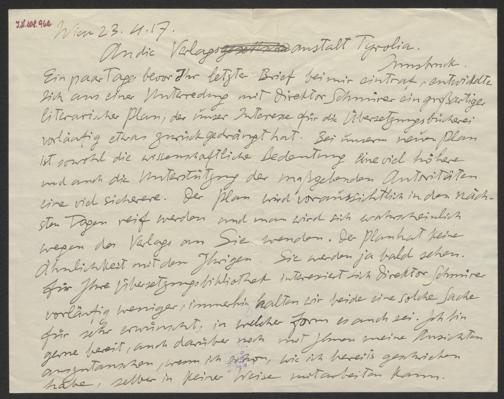 Wien 23.4.17.
An die Verlagsanstalt Tyrolia.
Innsbruck.
Ein paar Tage bevor Ihr letzter Brief bei mir eintraf, entwickelte
sich aus einer Unterredung mit Direktor Schmürer ein großartiger
literarischer Plan, der unser Interesse für die Übersetzungsbücherei
vorläufig etwas zurückgedrängt hat. Bei unserm neuen Plan
ist sowohl die wissenschaftliche Bedeutung eine viel höhere
und auch die Unterstützung der maßgebenden Autoritäten
eine viel sicherere. Der Plan wird voraussichtlich in den näch-
sten Tagen reif werden und man wird sich wahrscheinlich
wegen des Verlags an Sie wenden. Der Plan hat keine
Ähnlichkeit mit dem Ihrigen. Sie werden ja bald sehen.
Für Ihre Übersetzungsbibliothek interessiert sich Direktor Schmürer
vorläufig weniger, immerhin halten wir beide eine solche Sache
für sehr erwünscht, in welcher Form es auch sei. Ich bin
gerne bereit, auch darüber noch mit Ihnen meine Ansichten
auszutauschen, wenn ich schon, wie ich bereits geschrieben
habe, selber in keiner Weise mitarbeiten kann.